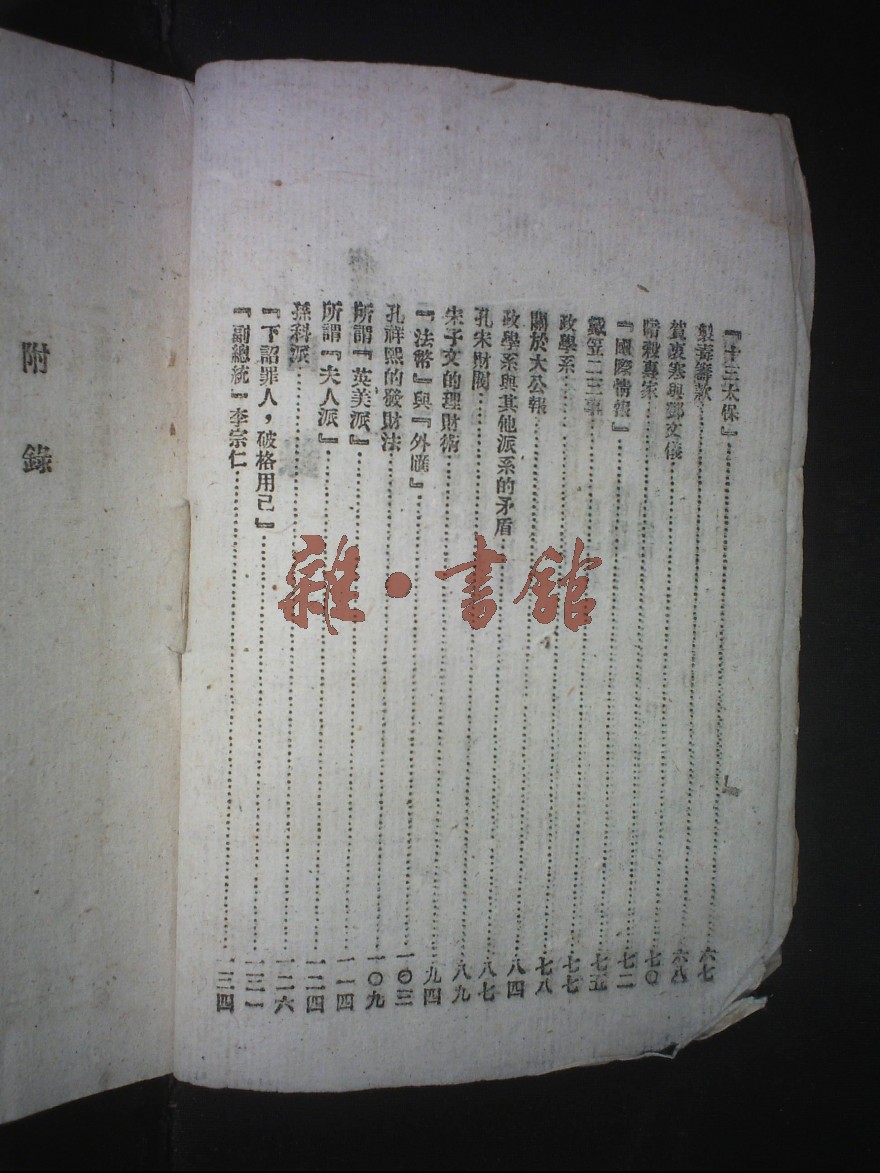 『十三太保』……六七
製毒籌款……六八
賀衷寒與鄧文儀……七〇
暗殺專家……七二
『國際情報』……七五
戴笠二三事……七七
政學系……七八
關於大公報……八四
政學系與其他派系的矛盾……八七
孔宋財閥……八九
宋子文的理財術……九四
『法幣』與『外匯』……一〇三
孔祥熙的發財法……一〇九
所謂『英美派』……一一四
所謂『夫人派』……一二四
孫科派……一二六
『下詔罪人，破格用己』……一三一
『副總統』李宗仁……一三四
附錄
雜·書館